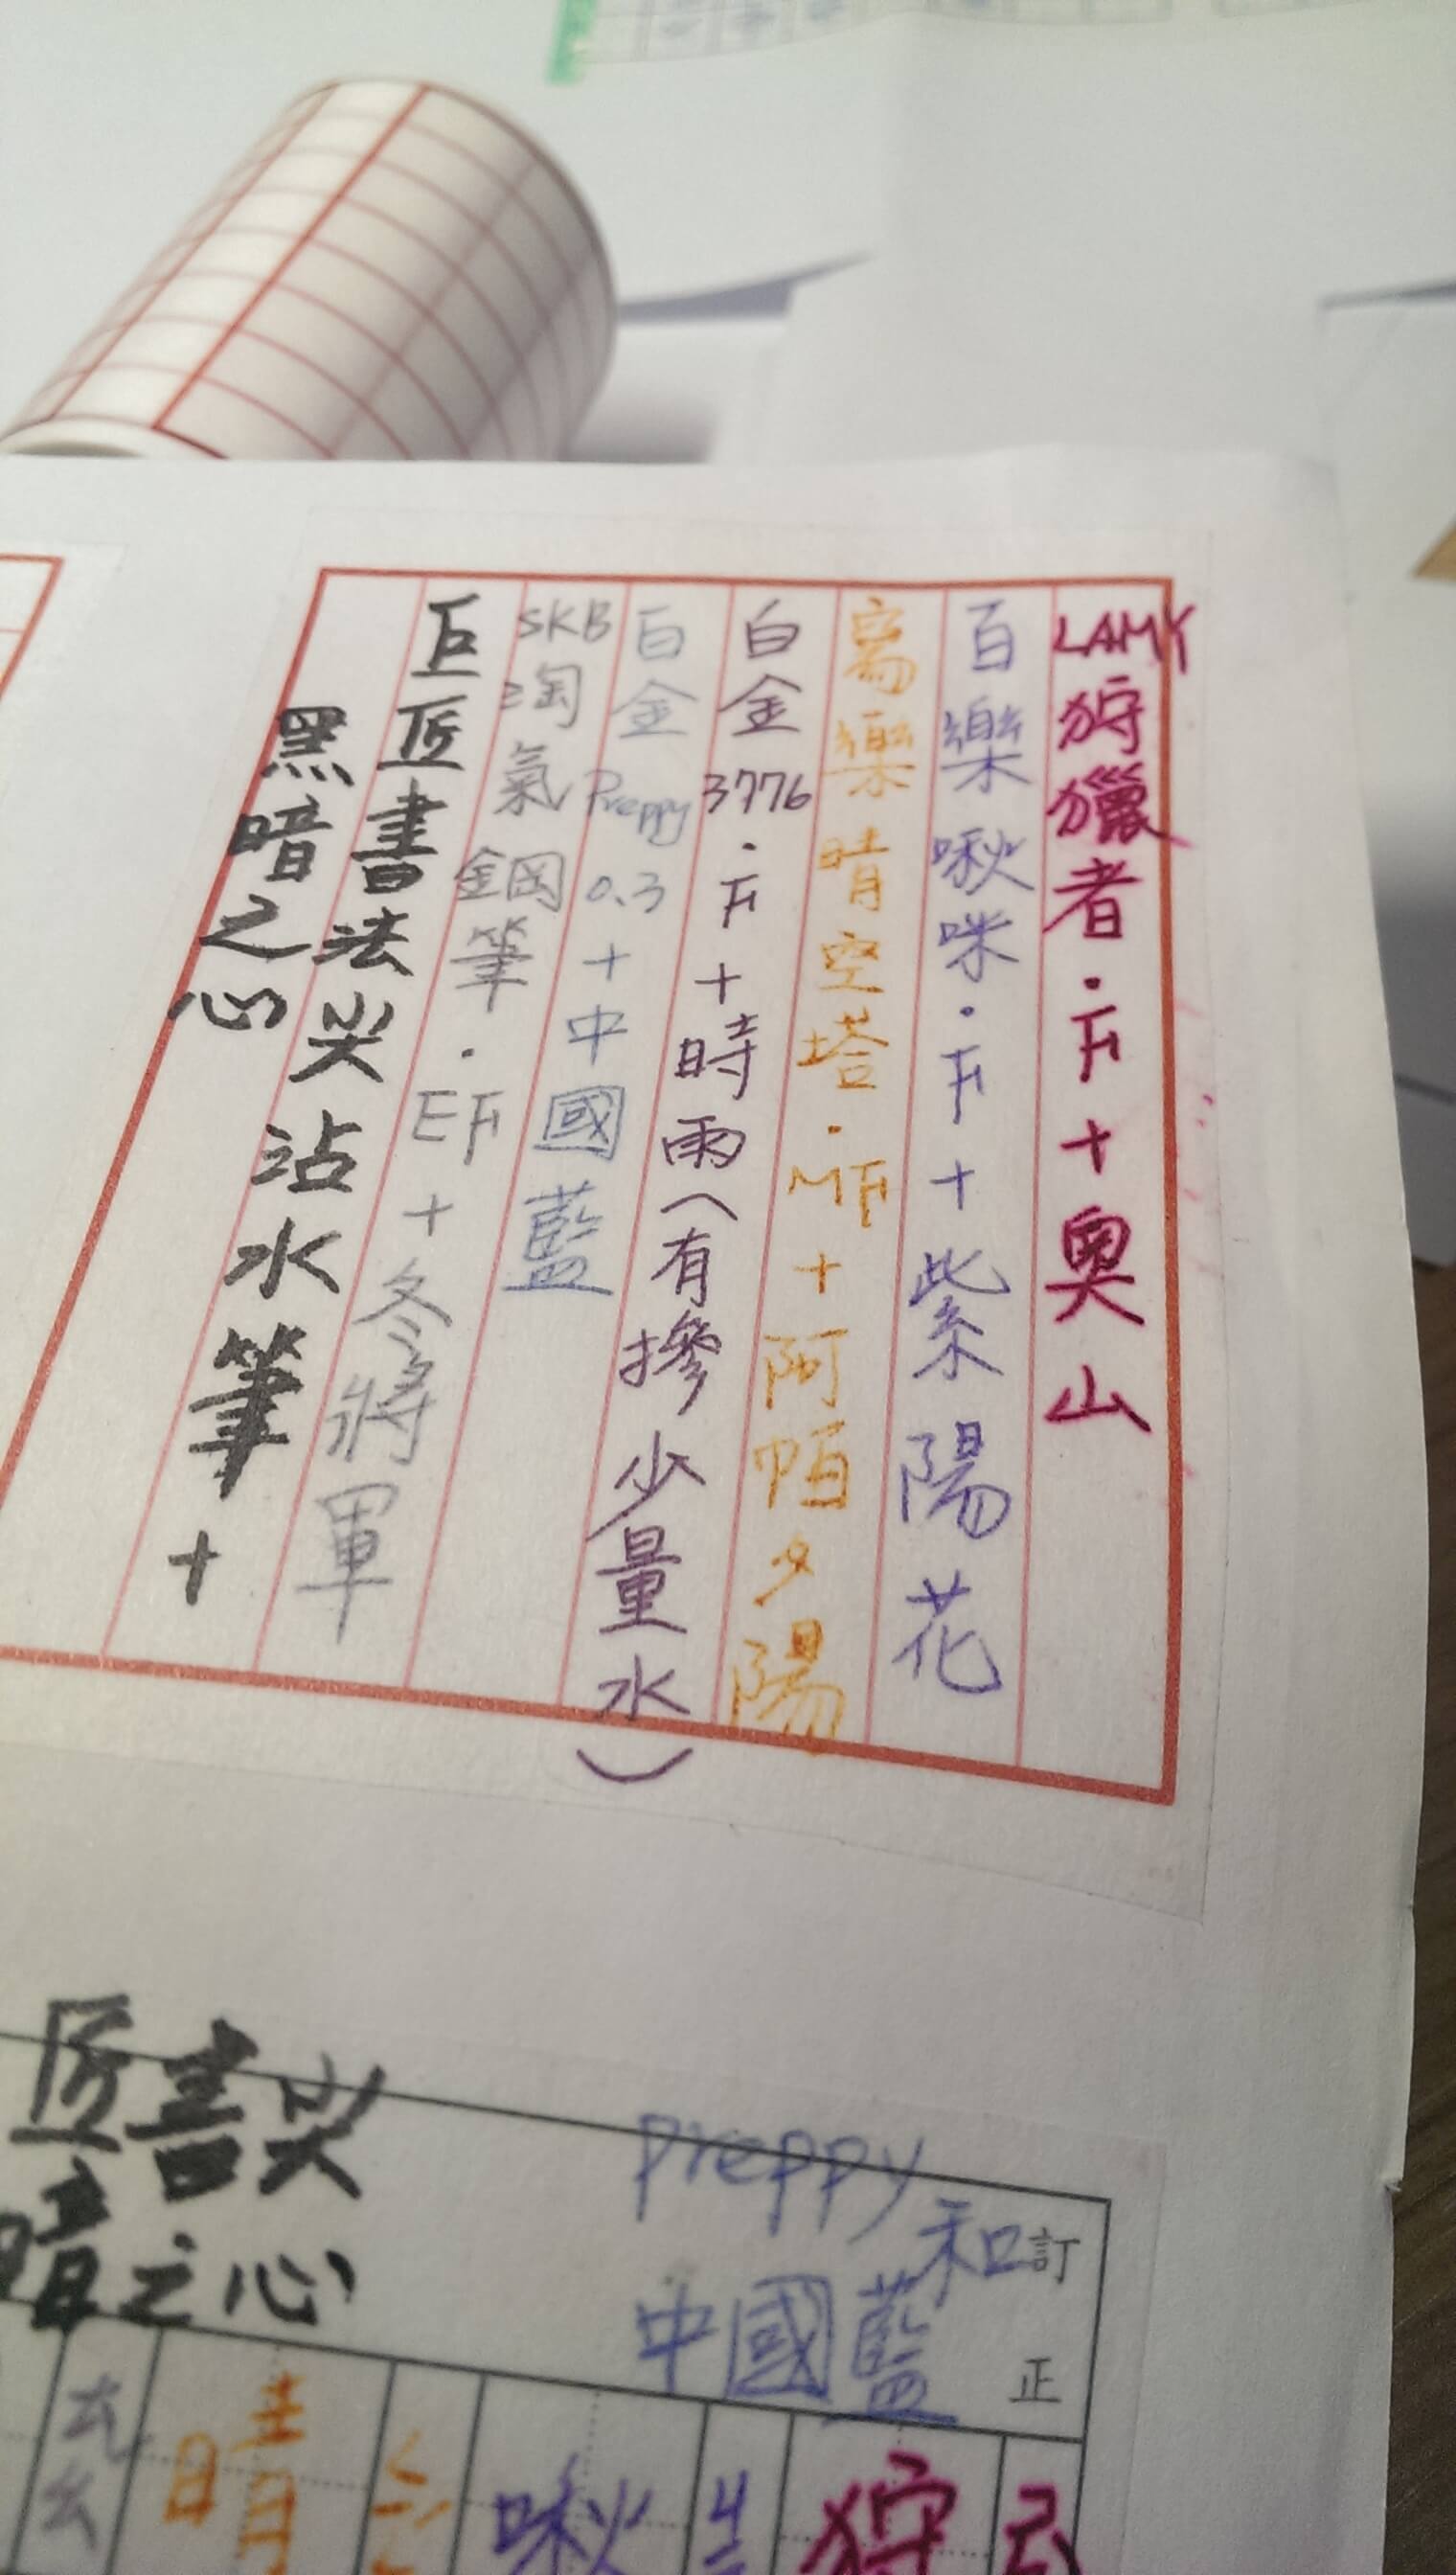 LAMY狩獵者·F+奧山
百樂啾咪·F+紫陽花
寫樂晴空塔·MF+阿帕夕陽
白金3776·F+時雨(有摻少量水)
白金Preppy0.3+中國藍
SKB淘氣鋼筆·EF+冬將軍
巨匠書法尖沾水筆+
黑暗之心
preppy
和
中國藍
訂正
匠書尖
暗之心
狩
ㄐ
啾
ㄑ
晴
ㄊ
ㄠ